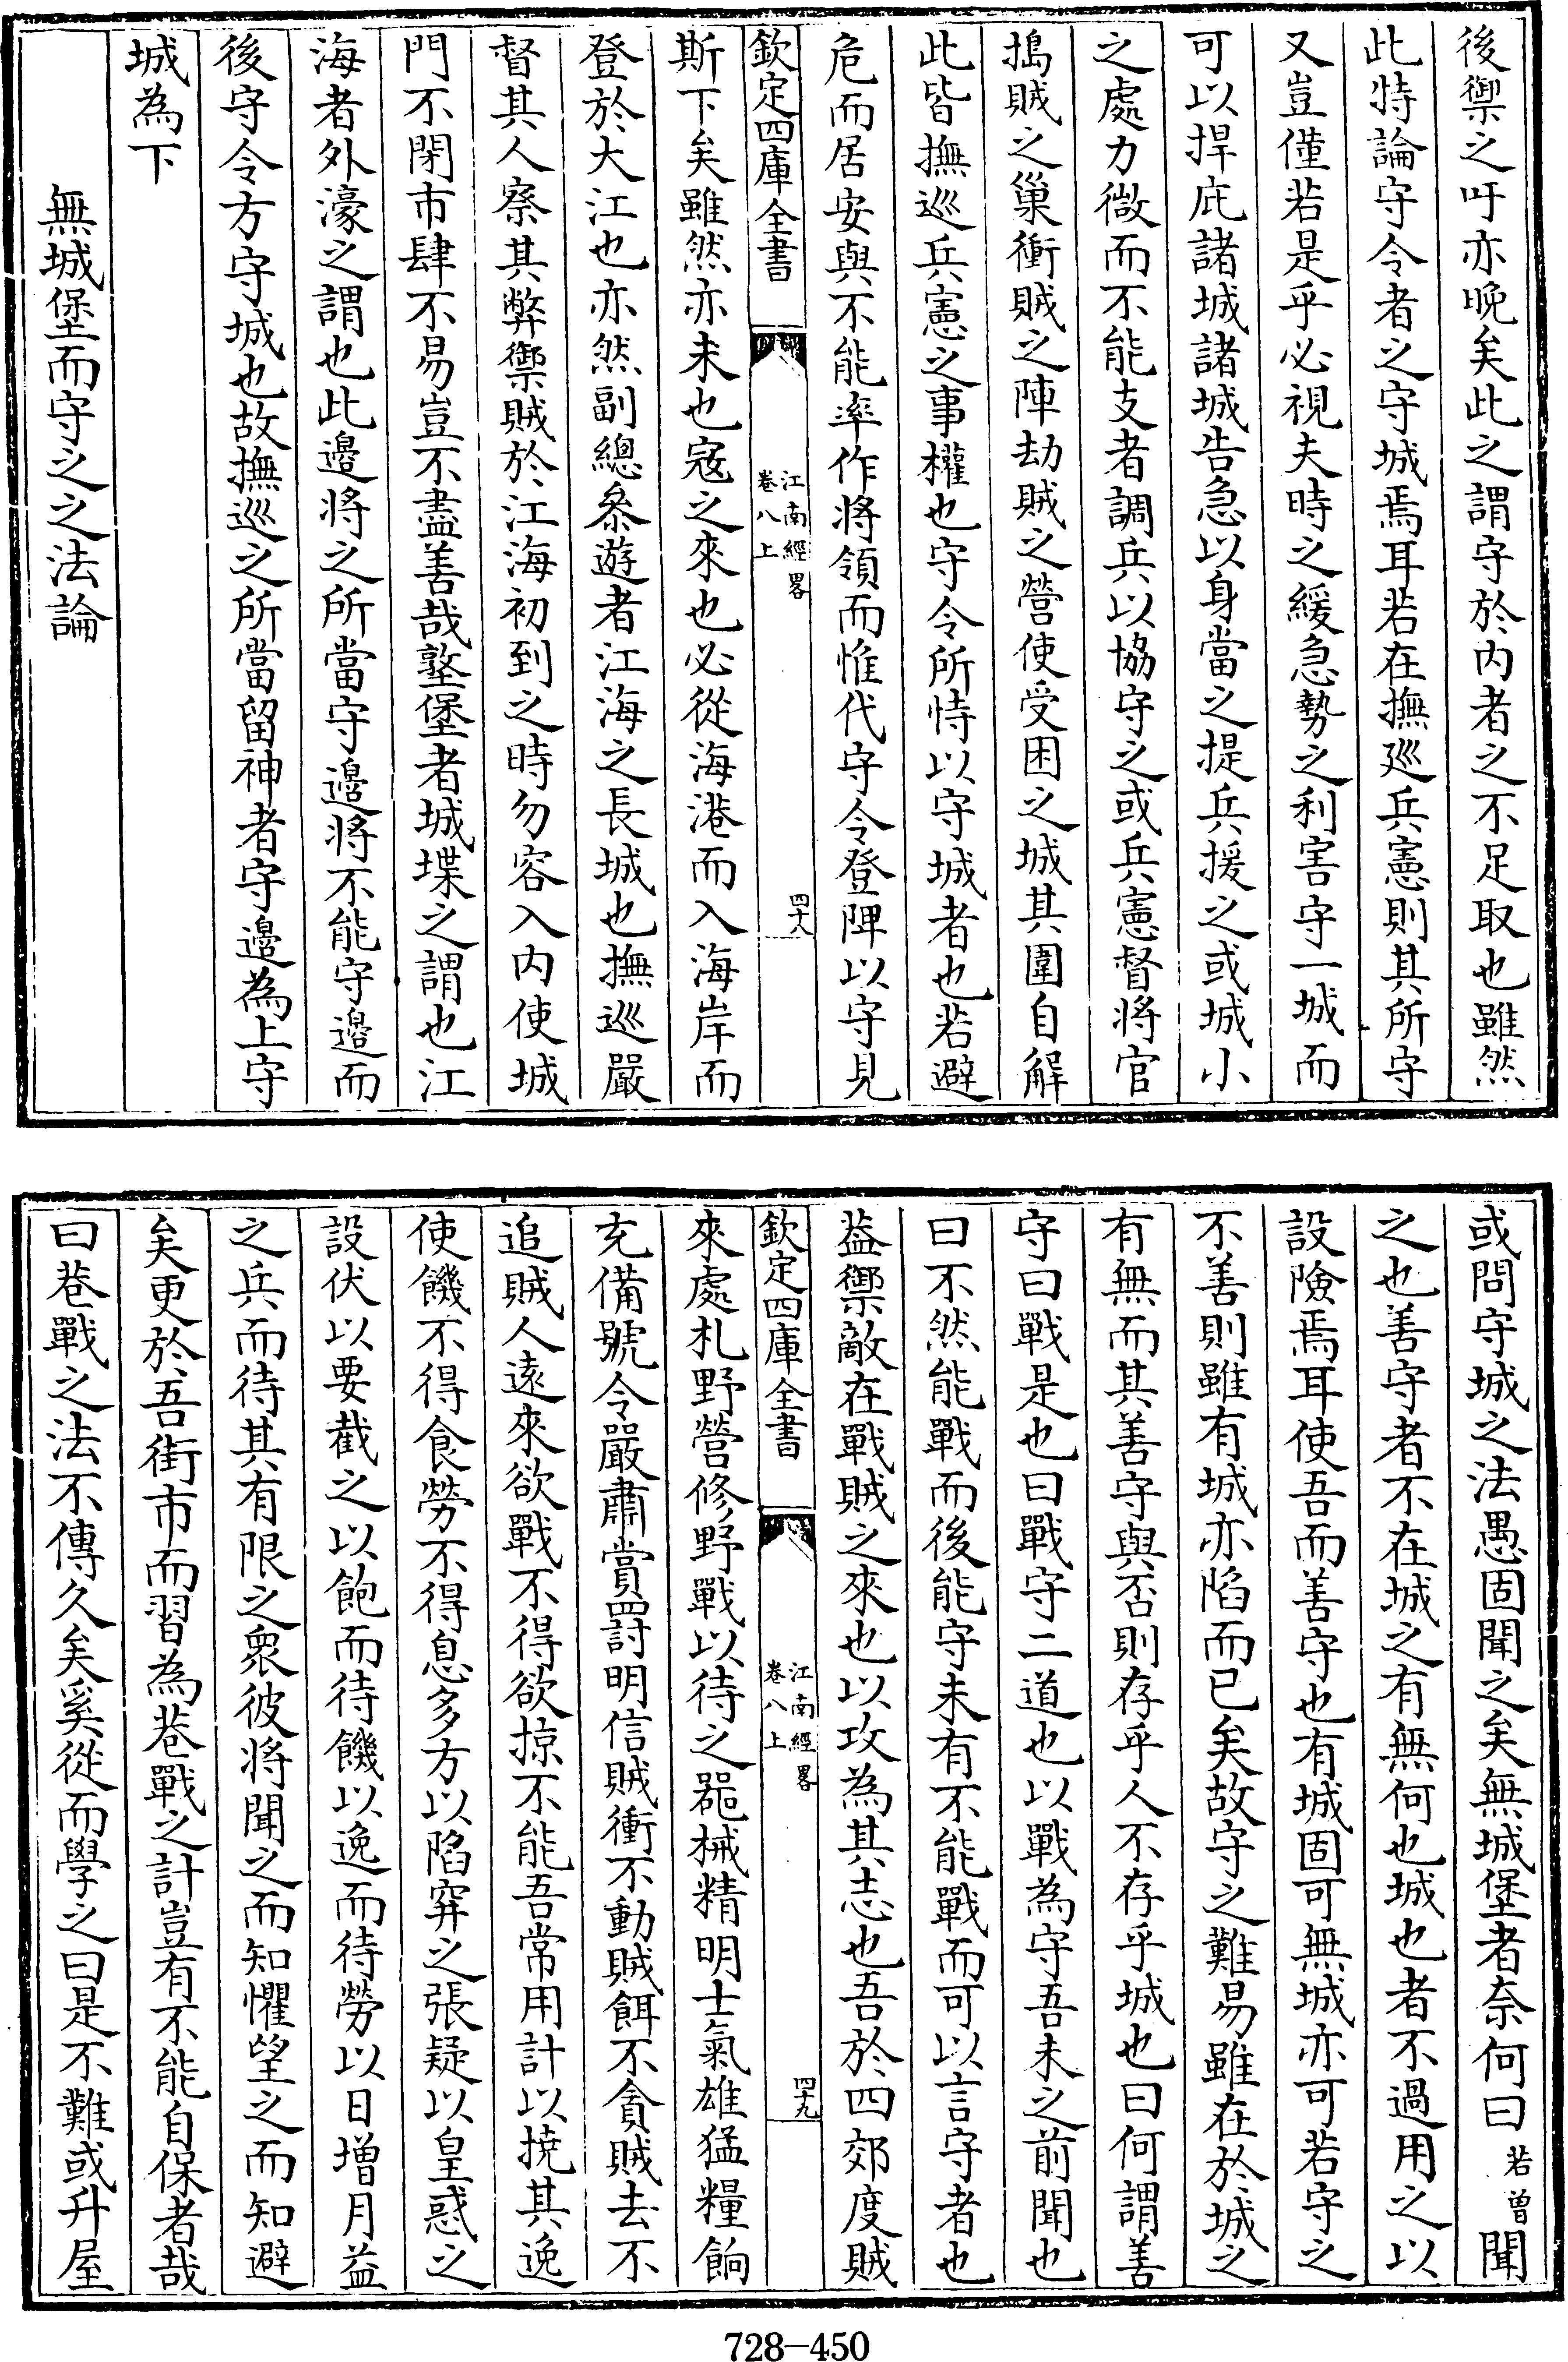 後禦之吁亦晚矣此之謂守於内者之不足取也雖然
此特論守令者之守城焉耳若在撫巡兵憲則其所守
又豈僅若是乎必視夫時之緩急勢之利害守一城而
可以捍庇諸城諸城告急以身當之提兵援之或城小
之處力微而不能支者調兵以協守之或兵憲督將官
搗賊之巢衝賊之陣劫賊之營使受困之城其圍自解
此皆撫巡兵憲之事權也守令所恃以守城者也若避
危而居安與不能率作将領而惟代守令登陴以守見
欽定四庫全書
江南經畧
卷八上
四十八
斯下矣雖然亦未也宼之來也必從海港而入海岸而
登於大江也亦然副總叅遊者江海之長城也撫巡嚴
督其人察其弊禦賊於江海初到之時勿容入内使城
門不閉市肆不易豈不盡善哉墪堡者城堞之謂也江
海者外濠之謂也此邉将之所當守邉將不能守邉而
後守令方守城也故撫巡之所當留神者守邉為上守
城為下
無城堡而守之之法論
或問守城之法愚固聞之矣無城堡者奈何曰若曾聞
之也善守者不在城之有無何也城也者不過用之以
設險焉耳使吾而善守也有城固可無城亦可若守之
不善則雖有城亦陷而已矣故守之難易雖在於城之
有無而其善守與否則存乎人不存乎城也曰何謂善
守曰戰是也曰戰守二道也以戰為守吾未之前聞也
曰不然能戰而後能守未有不能戰而可以言守者也
葢禦敵在戰賊之來也以攻為其志也吾於四郊度賊
欽定四庫全書
江南經畧
卷八上
四十九
來處札野營修野戰以待之噐械精明士氣雄猛糧餉
充備號令嚴肅賞罸明信賊衝不動賊餌不貪賊去不
追賊人遠來欲戰不得欲掠不能吾常用計以撓其逸
使饑不得食勞不得息多方以陷穽之張疑以皇惑之
設伏以要截之以飽而待饑以逸而待勞以日增月益
之兵而待其有限之衆彼將聞之而知懼望之而知避
矣更於吾街市而習為巷戰之計豈有不能自保者哉
曰巷戰之法不傳久矣奚從而學之曰是不難或升屋
728-450